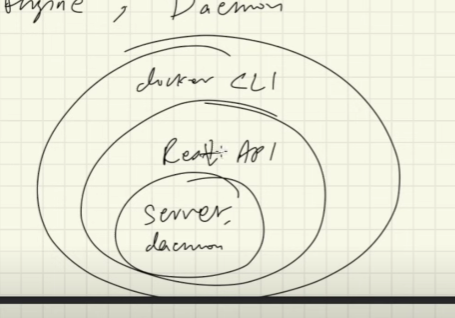 Engine, Daemon
docker CLI
Rest API
server,
daemon